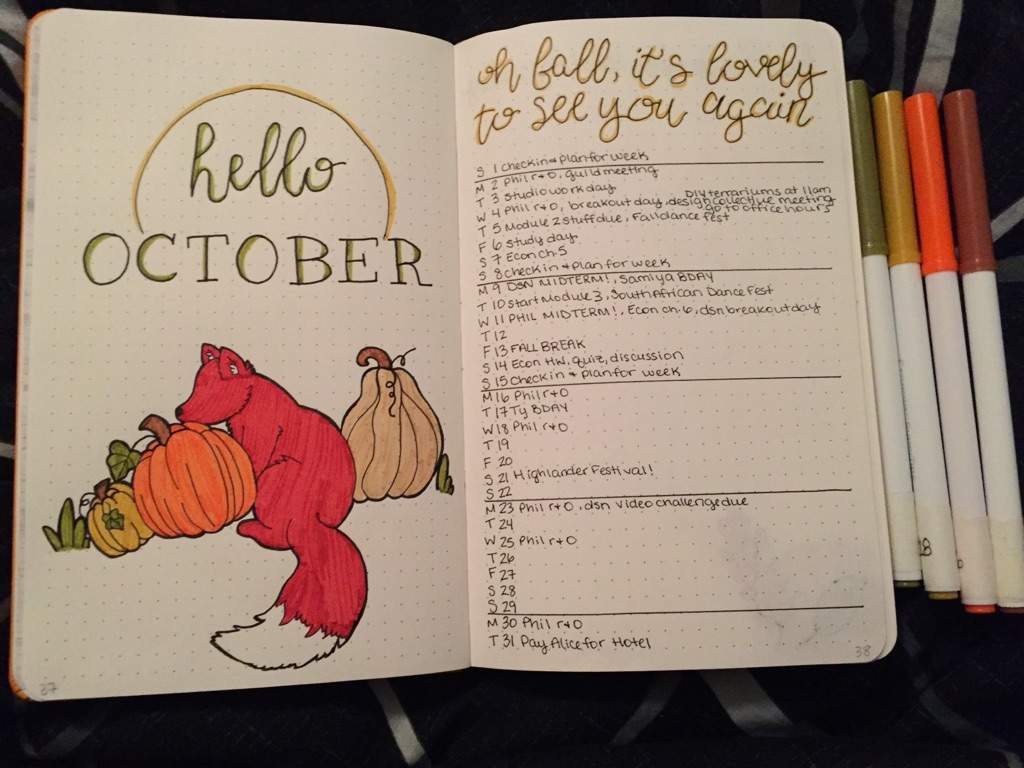 hello
OCTOBER
37
oh fall, it's lovely
to see you again
S 1 Check in + plan for week
M 2 Phil r+0, guild meeting
T 3 Studio work day
DIY terrariums at 11am
W 4 Phil r+0, breakout day, design collective meeting
go to office hours
T 5 Module 2 stuff due, Fall dance fest
F 6 Study day
S 7 Econ ch.5
S 8 Check in + plan for week
M 9 DSN MIDTERM!, Samiya BDAY
T 10 Start Module 3, South African Dance Fest
W 11 PHIL MIDTERM!, Econ ch. 6, dsn breakout day
T 12
F 13 FALL BREAK
S 14 Econ HW, quiz, discussion
S 15 Check in + plan for week
M 16 Phil r+0
T 17 Ty BDAY
W 18 Phil r+0
T 19
F 20
S 21 Highlander Festival!
S 22
M 23 Phil r+0, dsn video challenge due
T 24
W 25 Phil r+0
T 26
F 27
S 28
S 29
M 30 Phil r+0
T 31 Pay Alice for Hotel
38